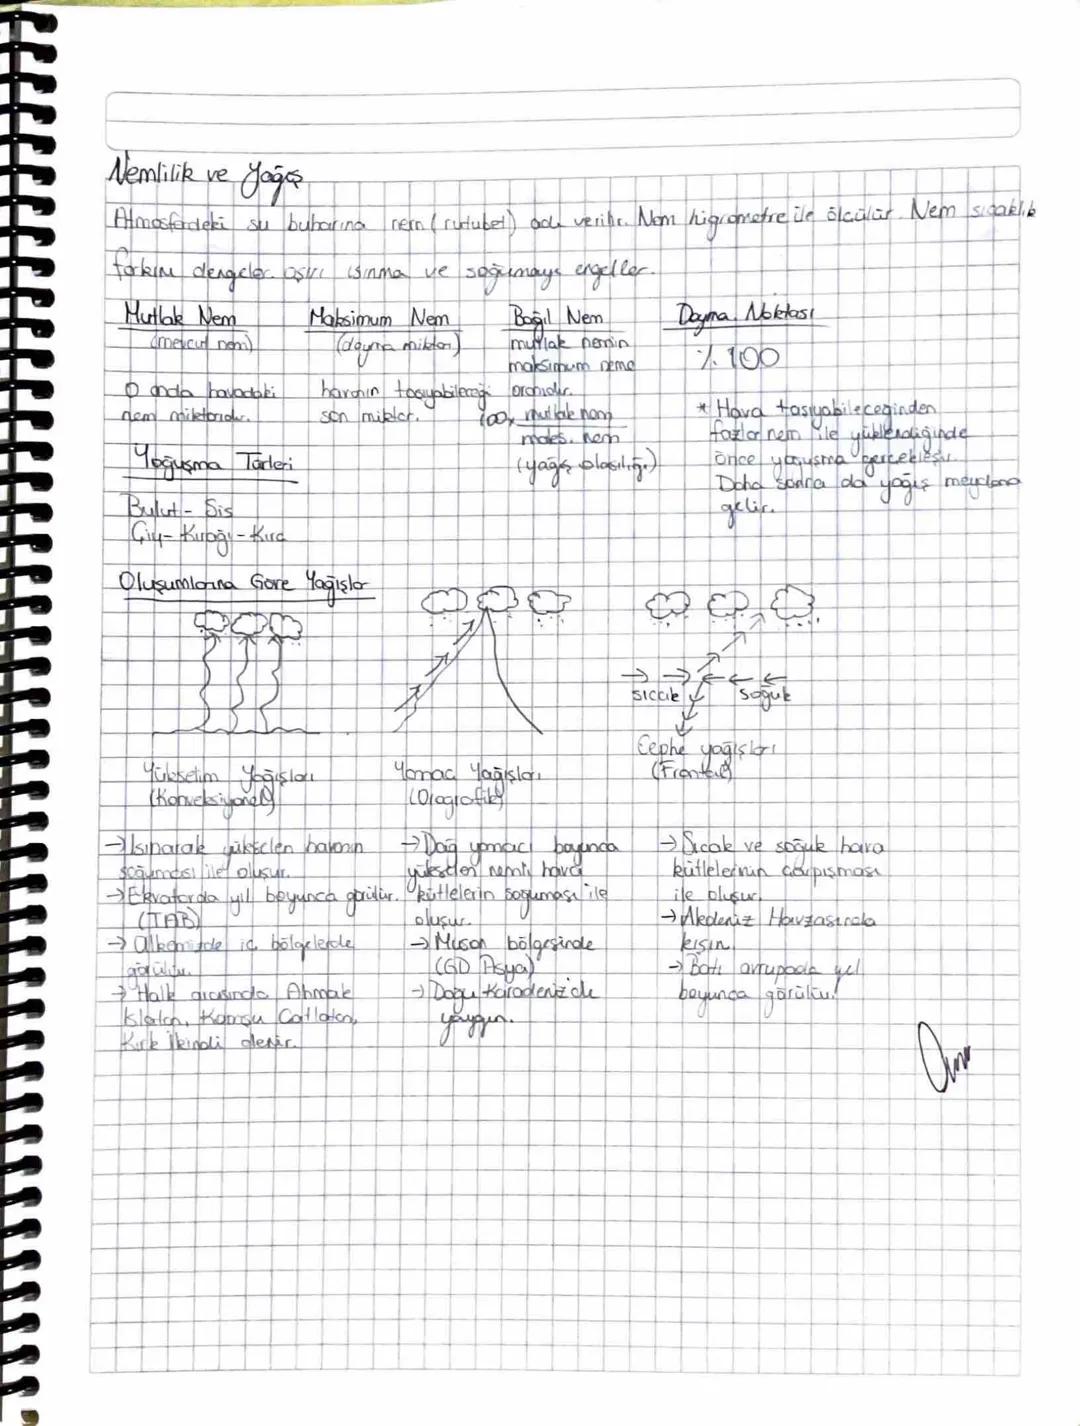 Nemlilik ve Yağış
Atmosferdeki su buharına nem (rutubet) adı verilir. Nem higrometre ile ölçülür. Nem sıcaklık
farkını dengeler. aşırı ısınma ve soğumayı engeller.
Mutlak Nem
(mevcut nem)
O anda havadaki
nem miktarıdır.
Maksimum Nem
(doyma miktarı)
havanın taşıyabileceği
son miktar.
Bağıl Nem
mutlak nemin
maksimum neme
oranıdır.
100x mutlak nem
maks. nem
(yağış olasılığı)
Doyma Noktası
% 100
* Hava taşıyabileceğinden
fazla nem ile yüklendiğinde
önce yoğuşma gerçekleşir.
Daha sonra da yağış meydana
gelir.
Yoğuşma Türleri
Bulut - Sis
Çiy - Kırağı - Kırç
Oluşumlarına Göre Yağışlar
sıcak
soğuk
Yükselim Yağışları
(Konveksiyonel)
→ Isınarak yükselen havanın
soğuması ile oluşur.
→ Ekvatorda yıl boyunca görülür.
(TAB)
→ Ülkemizde iç bölgelerde
görülür.
→ Halk arasında Ahmak
Islatan, Komşu Çatlatan,
Kırk İkindi denir.
Yamaç Yağışları
(Orografik)
→ Dağ yamacı boyunca
yükselen nemli hava
kütlelerin soğuması ile
oluşur.
→ Muson bölgesinde
(GD Asya)
→ Doğu Karadeniz'de
yaygın.
Cephe yağışları
(Frontal)
→ Sıcak ve soğuk hava
kütlelerinin çarpışması
ile oluşur.
→ Akdeniz Havzasında
kışın
→ Batı avrupada yıl
boyunca görülür.